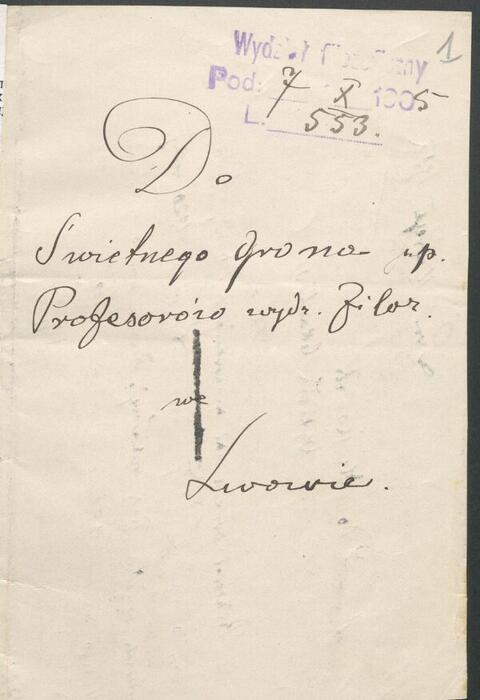 1
Wydział filozoficzny
Pod: 7 X 1905
L. 553.
Do
Świetnego Grona up.
Profesorów wydz. filoz.
we
Lwowie.